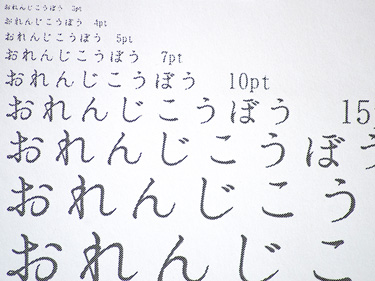 おれんじこうぼう 3pt
おれんじこうぼう 4pt
おれんじこうぼう 5pt
おれんじこうぼう 7pt
おれんじこうぼう 10pt
おれんじこうぼう 15
おれんじこうぼう
おれんじこう
おれんじこ